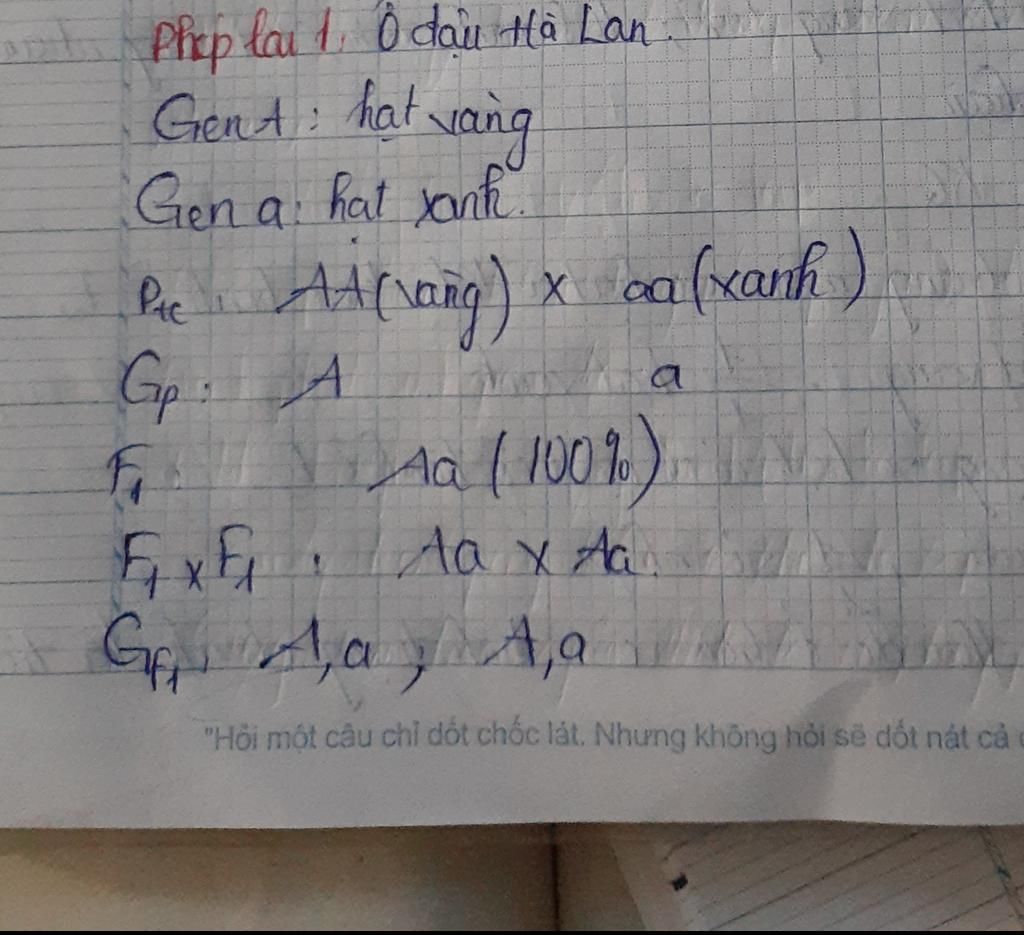 Phép lai 1. Ở đậu Hà Lan.
Gen A : hạt vàng
Gen a : hạt xanh.
Ptc : AA (vàng) x aa (xanh)
Gp : A a
F1 : Aa (100%)
F1 x F1 : Aa x Aa.
GF1 : A,a ; A,a
"Hỏi một câu chỉ dốt chốc lát. Nhưng không hỏi sẽ dốt nát cả